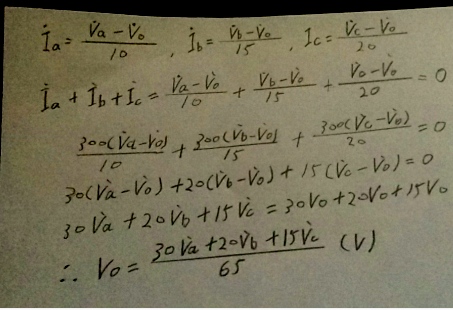 İa = (V̇a − V̇o)/10 , İb = (V̇b − V̇o)/15 , Ic = (V̇c − V̇o)/20
İa + İb + İc = (V̇a − V̇o)/10 + (V̇b − V̇o)/15 + (V̇o − V̇o)/20 = 0
300(V̇a − V̇o)/10 + 300(V̇b − V̇o)/15 + 300(V̇c − V̇o)/20 = 0
30(V̇a − V̇o) + 20(V̇b − V̇o) + 15(V̇c − V̇o) = 0
30V̇a + 20V̇b + 15V̇c = 30V̇o + 20V̇o + 15V̇o
∴ V̇o = (30V̇a + 20V̇b + 15V̇c)/65 (V)